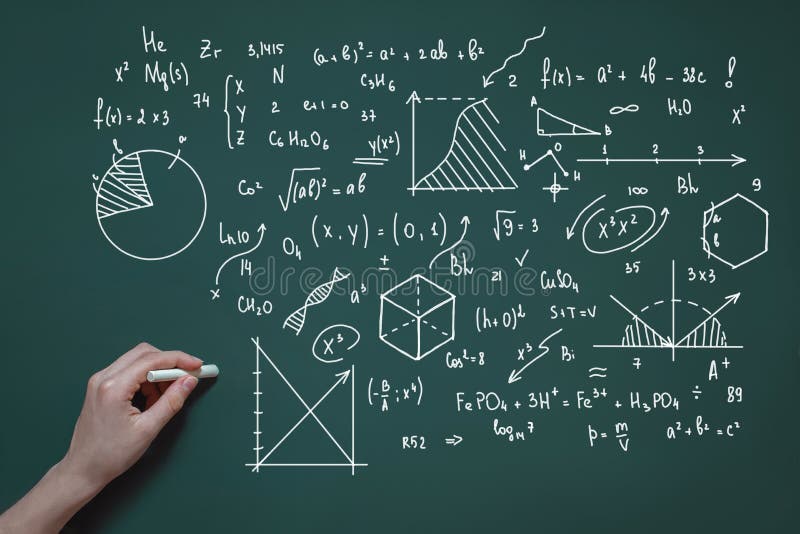 He Zr 3,1415 (a+b)² = a² + 2ab + b²
x² Mg(s) N C₃H₆ 2 f(x) = a² + 4b - 38c !
f(x) = 2 x 3 74 { X Y Z 2 e+1=0 37 A B ∞ H₂O x²
C₆H₁₂O₆ y(x²) H O H 1 2 3
a b c Co² √(ab)² = ab 100 Bh 9
Ln10 O₄ (x, y) = (0, 1) √9 = 3 x³x² a b
x 14 ± Bh 21 ✓ CuSO₄ 35 3x3
CH₂O a³ (h+0)² S+T=V
x³ Cos²=8 x³ Bi ≈ 7 A⁺
(-B/A ; x⁴) FePO₄ + 3H⁺ = Fe³⁺ + H₃PO₄ ÷ 89
R52 ⇒ log₁₄7 p = m/V a² + b² = c²
dreamstime